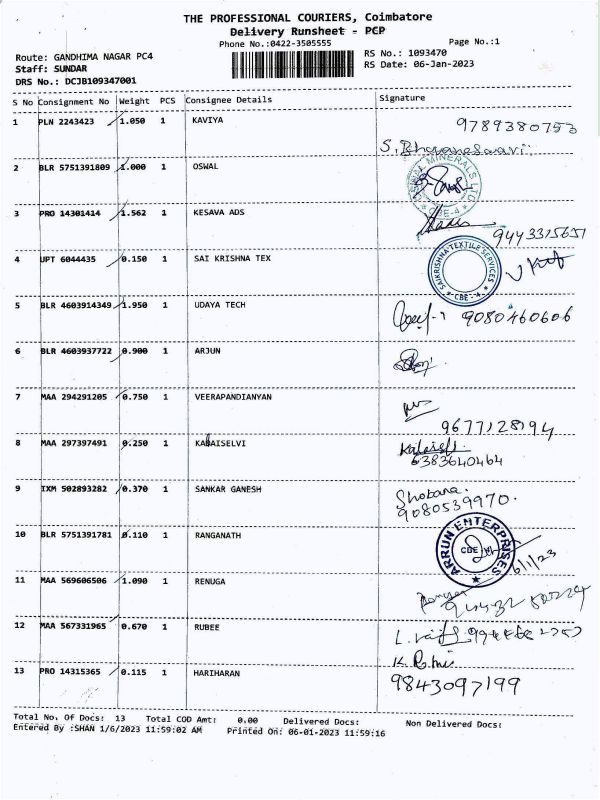 THE PROFESSIONAL COURIERS, Coimbatore
Delivery Runsheet - PCP
Phone No.:0422-3505555
Page No.:1
Route: GANDHIMA NAGAR PC4
RS No.: 1093470
Staff: SUNDAR
RS Date: 06-Jan-2023
DRS No.: DCJB109347001
S No Consignment No Weight PCS Consignee Details Signature
1 PLN 2243423 1.050 1 KAVIYA 9789380753
S.
2 BLR 5751391809 1.000 1 OSWAL
OSWAL MINERALS LTD CBE-4
3 PRO 14301414 1.562 1 KESAVA ADS
9443315651
4 UPT 6044435 0.150 1 SAI KRISHNA TEX
SAIKRISHNA TEXTILE SERVICES CBE-4
5 BLR 4603914349 1.950 1 UDAYA TECH
9080460606
6 BLR 4603937722 0.900 1 ARJUN
7 MAA 294291205 0.750 1 VEERAPANDIANYAN
9677128194
8 MAA 297397491 0.250 1 KALAISELVI
6383640464
9 IXM 502893282 0.370 1 SANKAR GANESH
Shobana.
9080539970.
10 BLR 5751391781 0.110 1 RANGANATH
ARRUN ENTERPRISES CBE
6/1/23
11 MAA 569606506 1.090 1 RENUGA
12 MAA 567331965 0.670 1 RUBEE
L.
13 PRO 14315365 0.115 1 HARIHARAN
K.
9843097199
Total No. Of Docs: 13 Total COD Amt: 0.00 Delivered Docs: Non Delivered Docs:
Entered By :SHAN 1/6/2023 11:59:02 AM Printed On: 06-01-2023 11:59:16